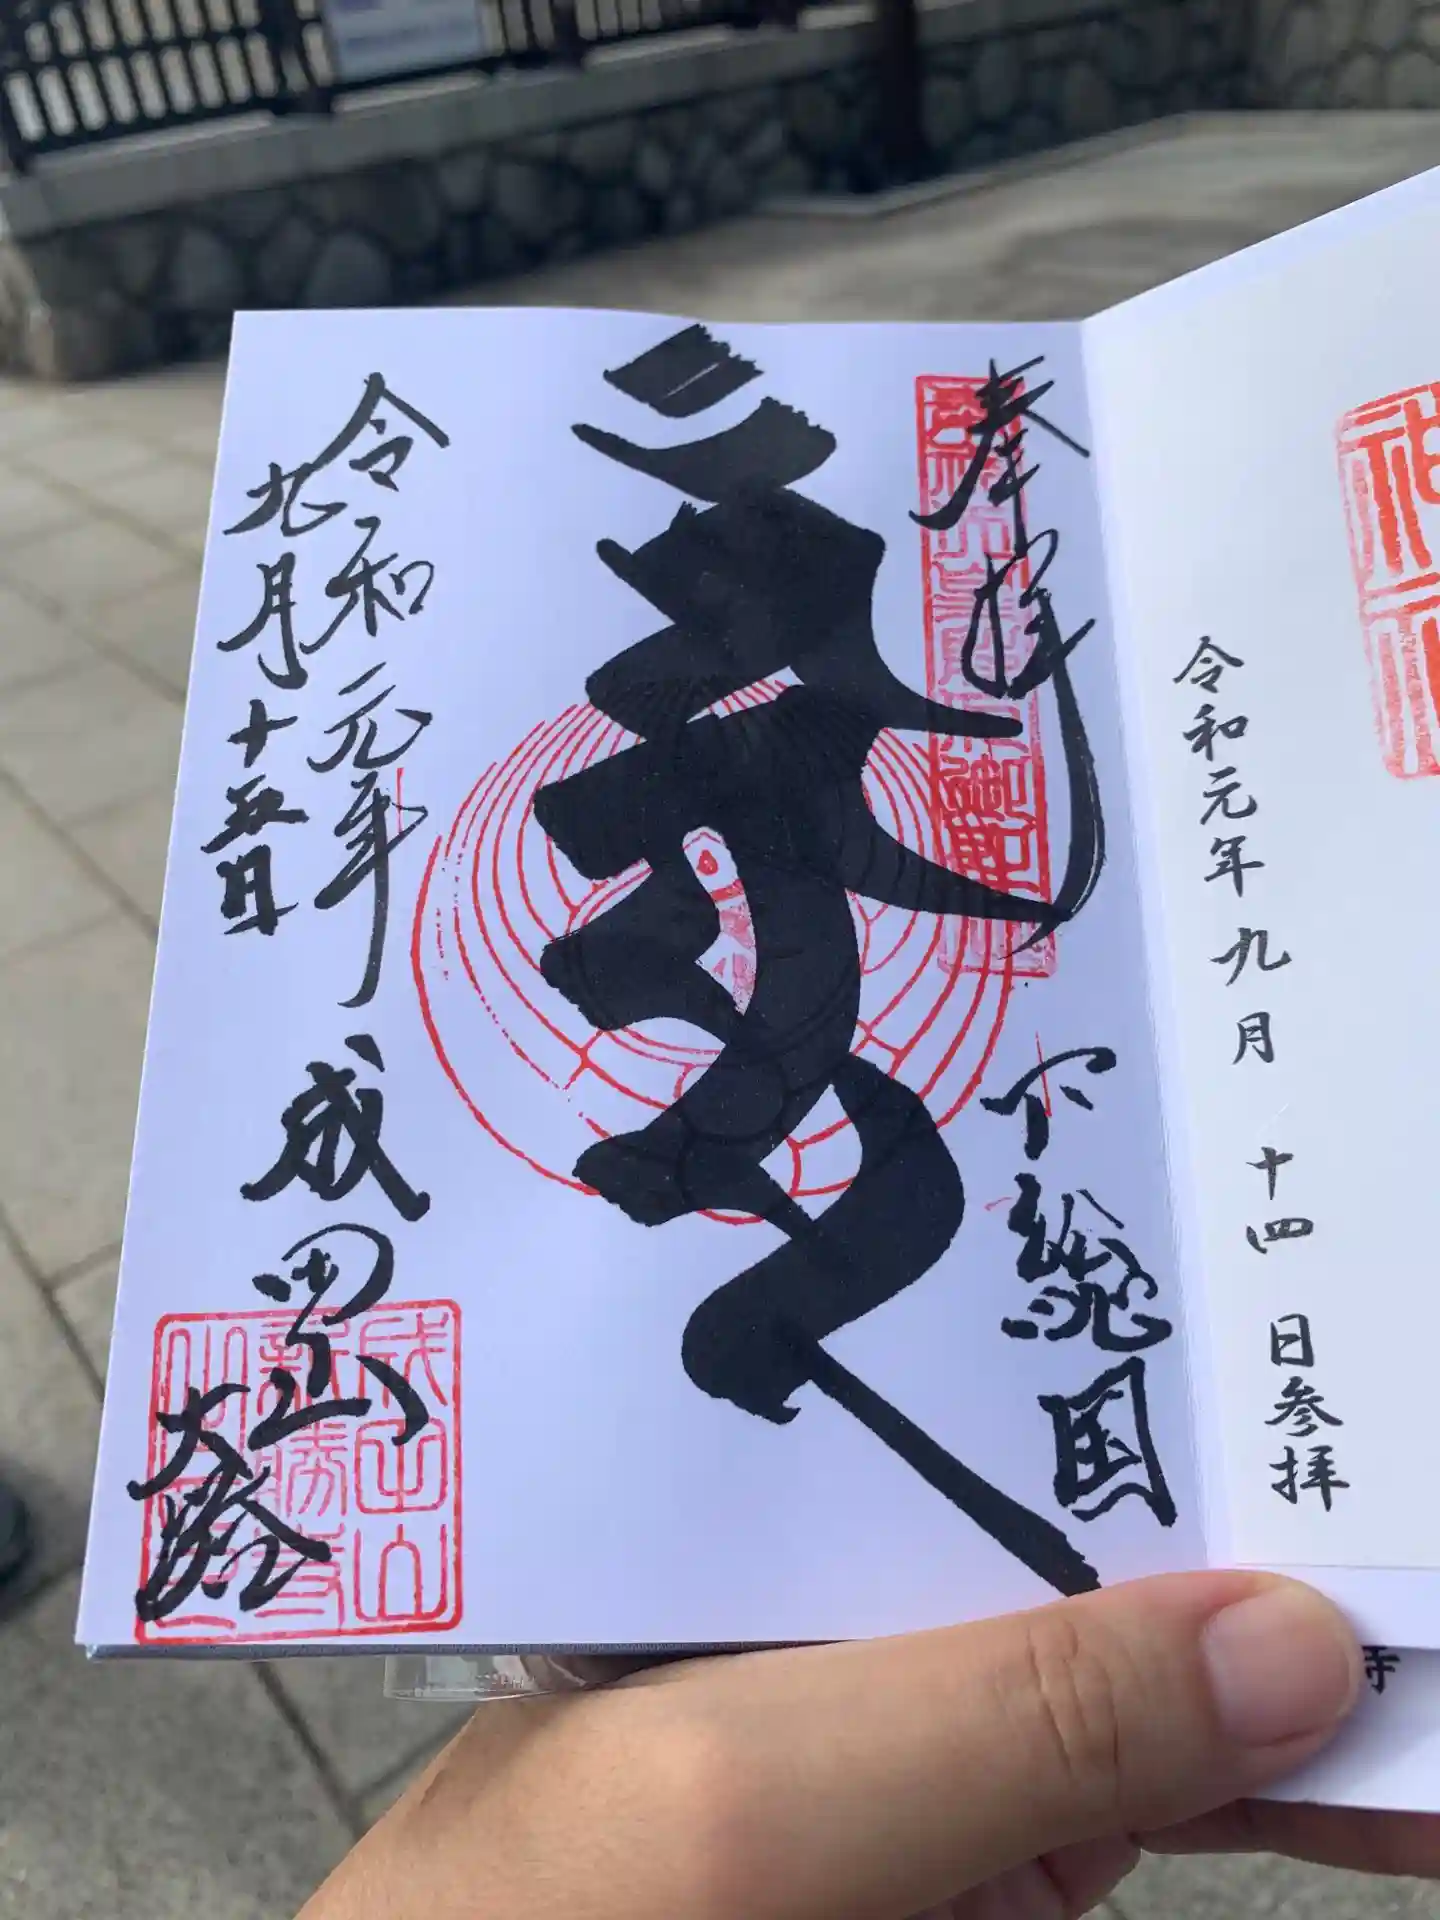 奉拝
下総国
令和元年
九月十五日
成田山
大塔
成田山
新勝寺
令和元年九月十四日参拝
神
寺